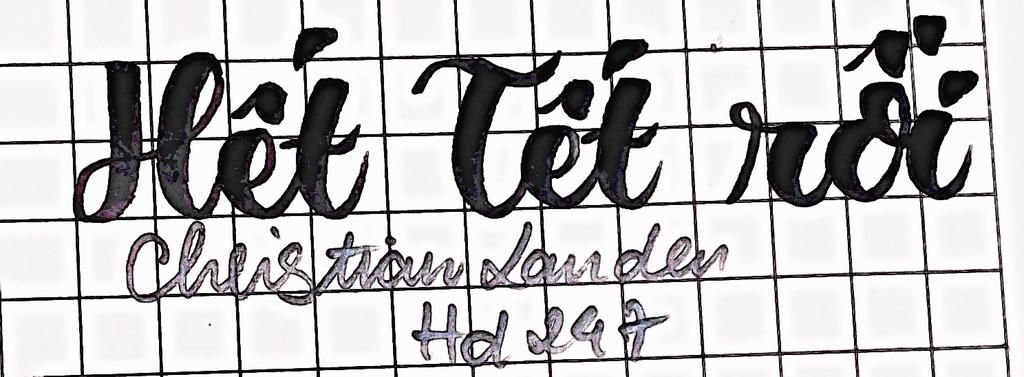 Hết Tết rồi
Christian Landen
Hd 247